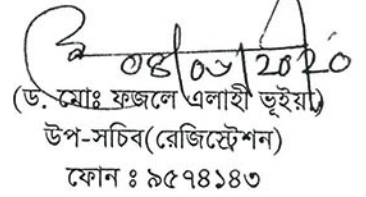 08/03/2020
(ড. মোঃ ফজলে এলাহী ভূইয়া)
উপ-সচিব(রেজিস্ট্রেশন)
ফোন ঃ ৯৫৭৪১৪৩